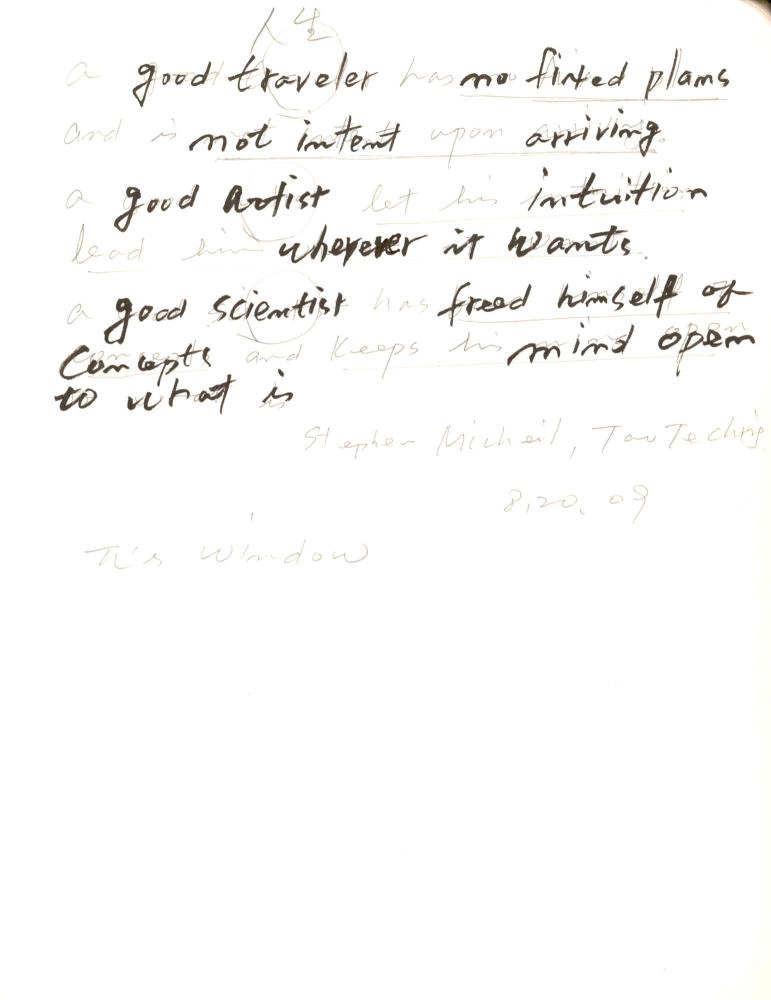 人生
a good traveler has no fixed plans
and is not intent upon arriving.
a good artist let his intuition
lead him wherever it wants.
a good scientist has freed himself of
concepts and keeps his mind open
to what is
Stephen Micheil, Tao Te Ching
8.20.09
Ti's Window